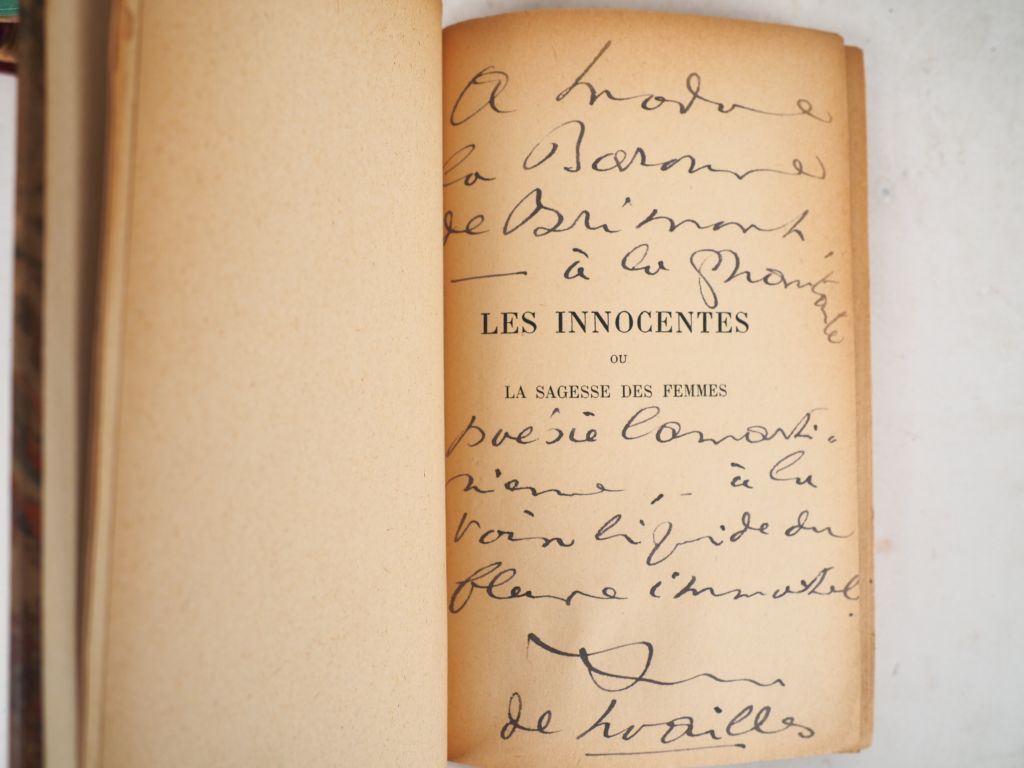 A Madame
la Baronne
de Brimont,
— à la chantante
LES INNOCENTES
OU
LA SAGESSE DES FEMMES
poésie lamarti-
nienne, - à la
voix liquide du
fleuve immortel.
Anna
de Noailles